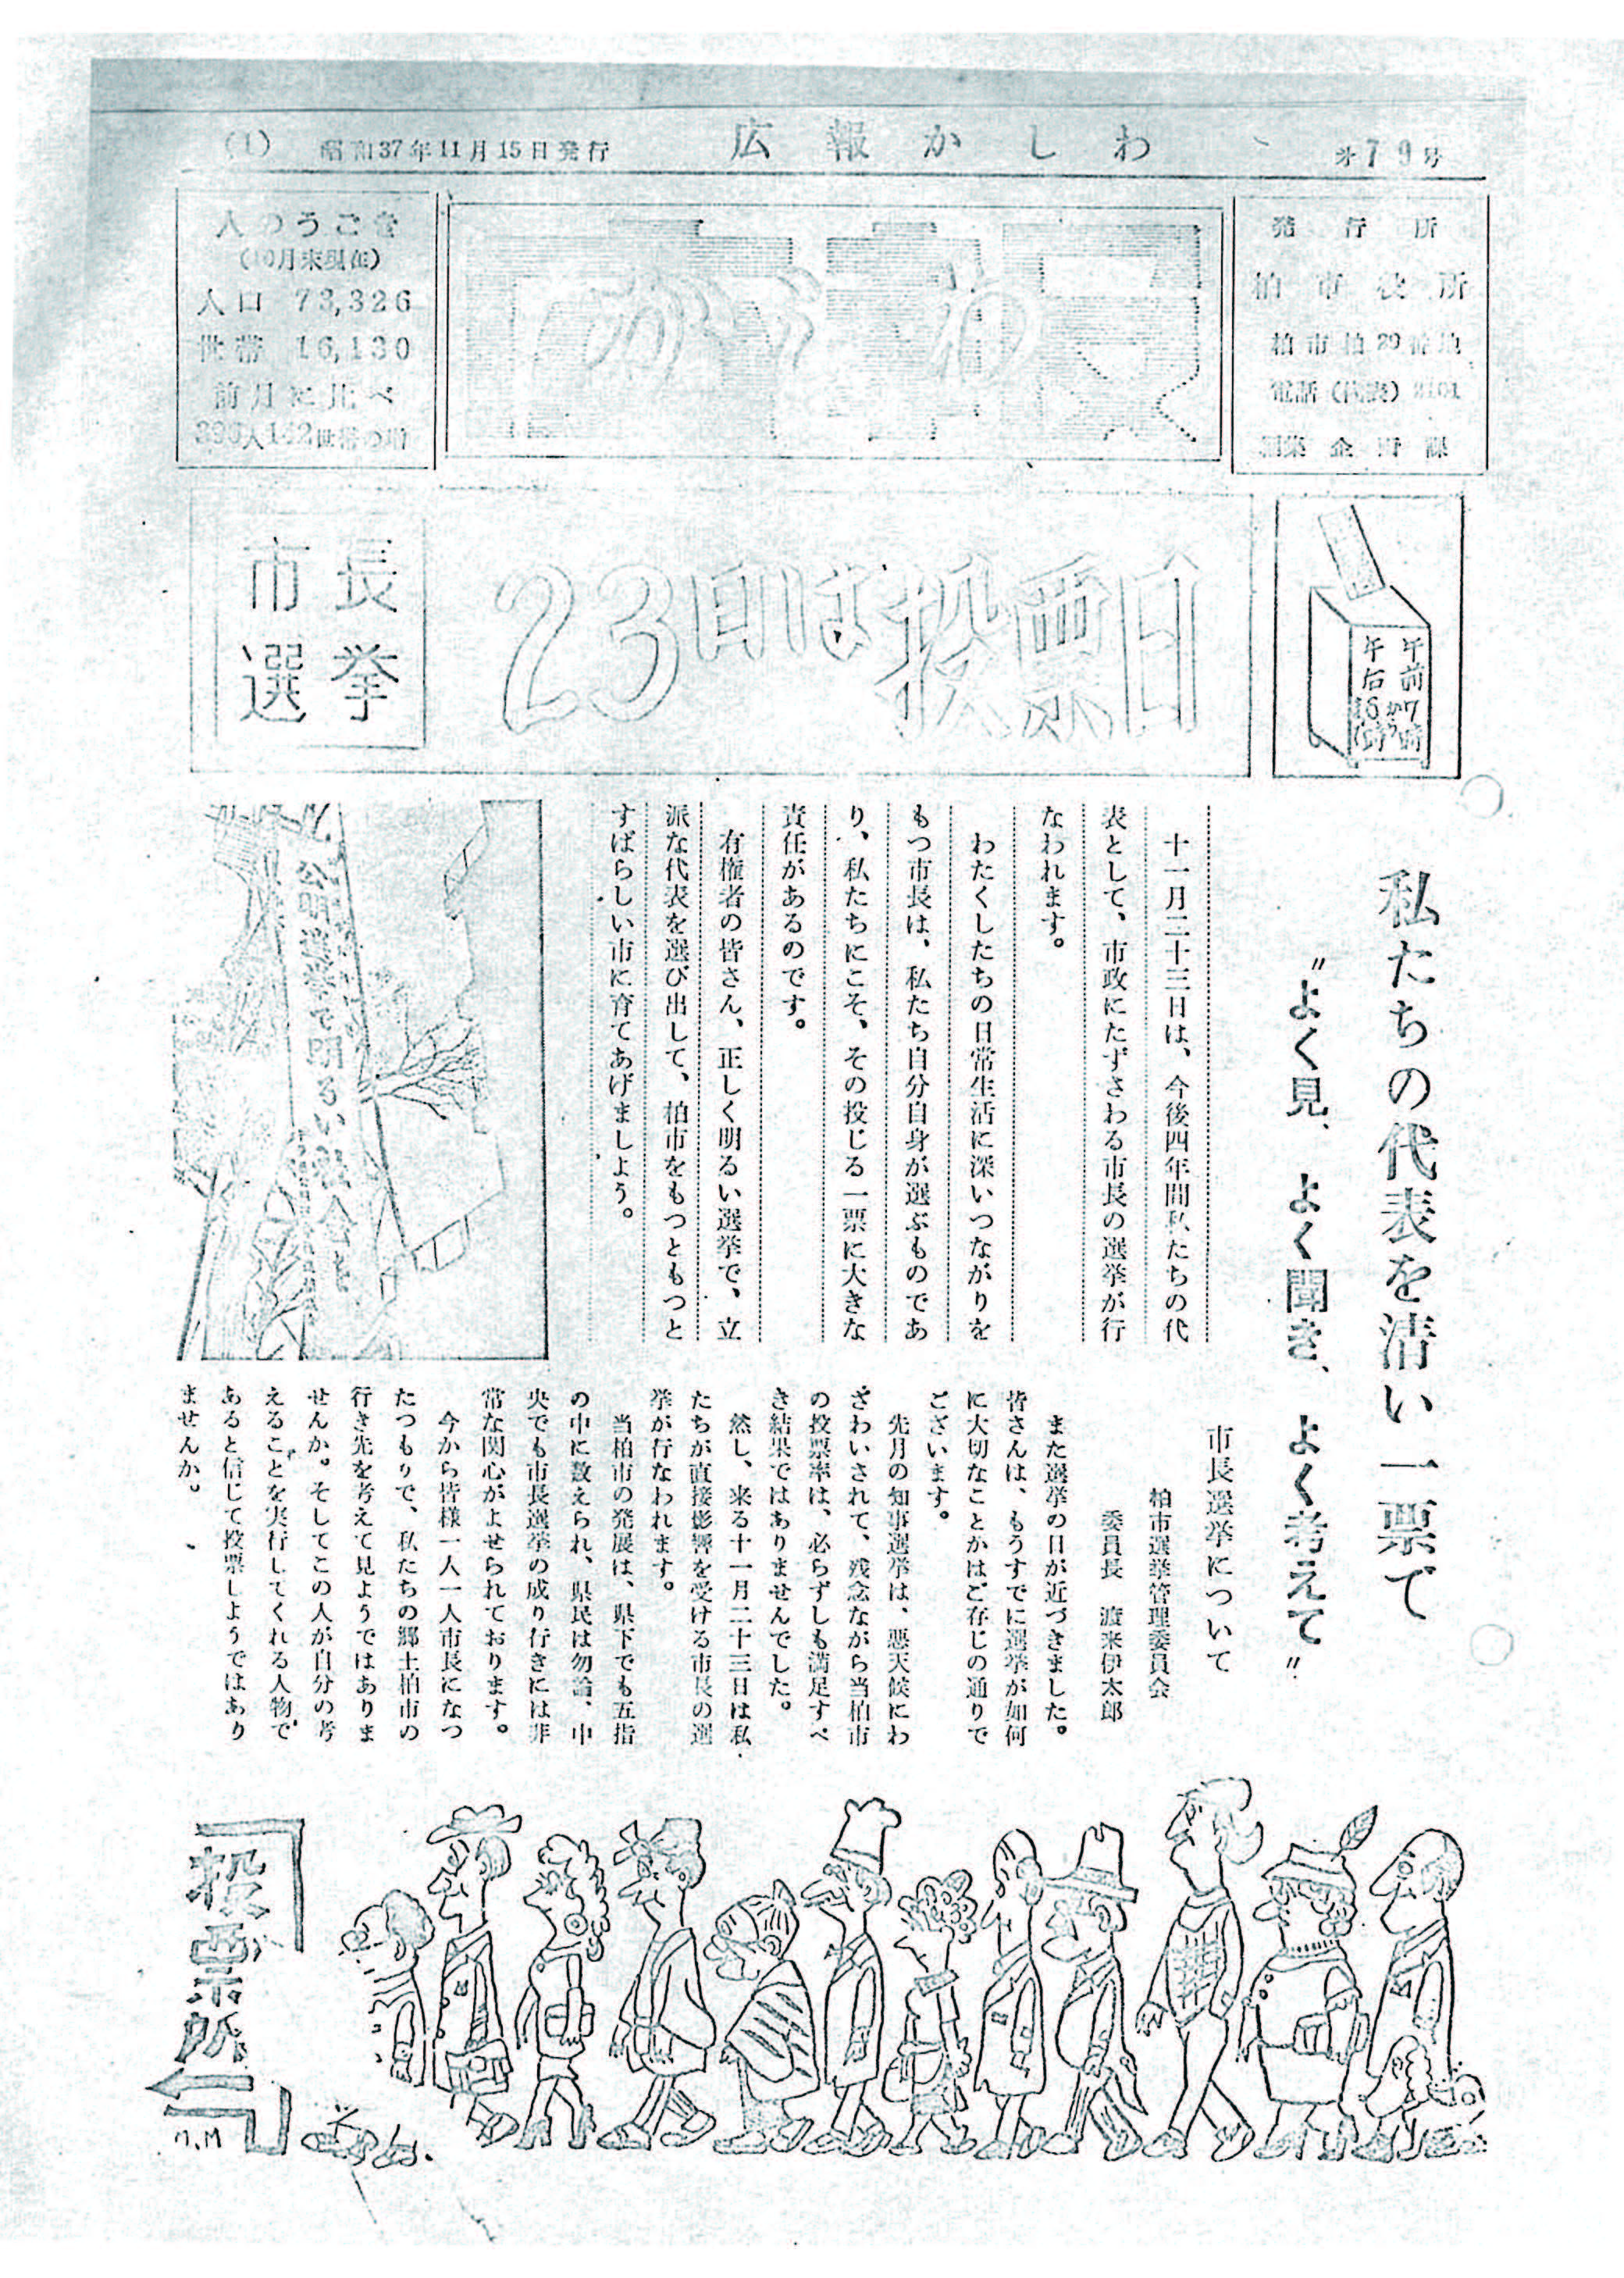 (1)
昭和37年11月15日発行
広報かしわ
第79号
発行所
柏市役所
柏市柏29番地
電話(代表)
かしわ
人のうごき
(10月末現在)
人口 73,326
世帯 16,130
前月に比べ
午前7時
から
午后6時
23日は投票日
市長
選挙
私たちの代表を清い一票で
〃よく見、よく聞き、よく考えて〃
十一月二十三日は、今後四年間私たちの代
表として、市政にたずさわる市長の選挙が行
なわれます。
わたくしたちの日常生活に深いつながりを
もつ市長は、私たち自分自身が選ぶものであ
り、私たちにこそ、その投じる一票に大きな
責任があるのです。
有権者の皆さん、正しく明るい選挙で、立
派な代表を選び出して、柏市をもつともつと
すばらしい市に育てあげましよう。
公明選挙で明るい社会を
市長選挙について
柏市選挙管理委員会
委員長 渡来伊太郎
また選挙の日が近づきました。
皆さんは、もうすでに選挙が如何
に大切なことかはご存じの通りで
ございます。
先月の知事選挙は、悪天候にわ
ざわいされて、残念ながら当柏市
の投票率は、必らずしも満足すべ
き結果ではありませんでした。
然し、来る十一月二十三日は私
たちが直接影響を受ける市長の選
挙が行なわれます。
当柏市の発展は、県下でも五指
の中に数えられ、県民は勿論、中
央でも市長選挙の成り行きには非
常な関心がよせられております。
今から皆様一人一人市長になつ
たつもりで、私たちの郷土柏市の
行き先を考えて見ようではありま
せんか。そしてこの人が自分の考
えることを実行してくれる人物で
あると信じて投票しようではあり
ませんか。
投票所
M.M